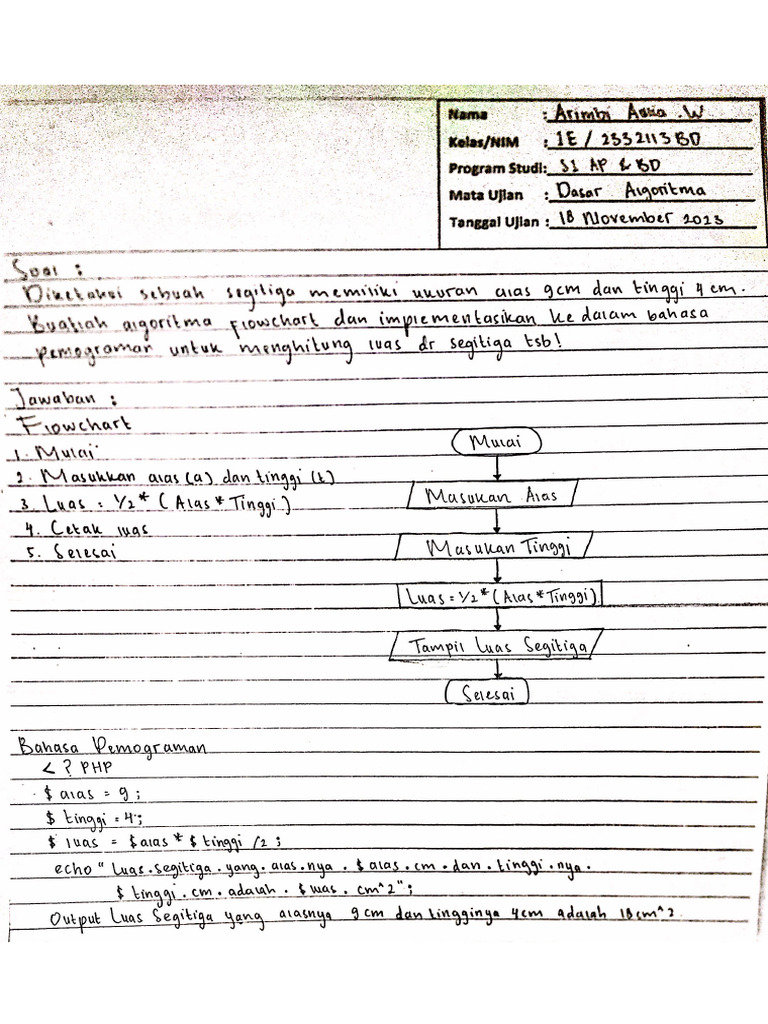 Nama : Arimbi Aulia .W
Kelas/NIM : 1E / 2332113BD
Program Studi: S1 AP & BD
Mata Ujian : Dasar Algoritma
Tanggal Ujian : 18 November 2023
Soal :
Diketahui sebuah segitiga memiliki ukuran alas 9cm dan tinggi 4 cm.
Buatlah algoritma flowchart dan implementasikan ke dalam bahasa
pemograman untuk menghitung luas dr segitiga tsb!
Jawaban :
Flowchart
1. Mulai
2. Masukkan alas (a) dan tinggi (t)
3. Luas = 1/2 * ( Alas * Tinggi )
4. Cetak luas
5. Selesai
Mulai
Masukan Alas
Masukan Tinggi
Luas = 1/2 * ( Alas * Tinggi )
Tampil Luas Segitiga
Selesai
Bahasa Pemograman
< ? PHP
$ alas = 9 ;
$ tinggi = 4 ;
$ luas = $ alas * $ tinggi /2 ;
echo " Luas . segitiga . yang . alas . nya . $ alas . cm . dan . tinggi . nya .
$ tinggi . cm . adalah . $ luas . cm^2 " ;
Output Luas Segitiga yang alasnya 9 cm dan tingginya 4cm adalah 18 cm^2.